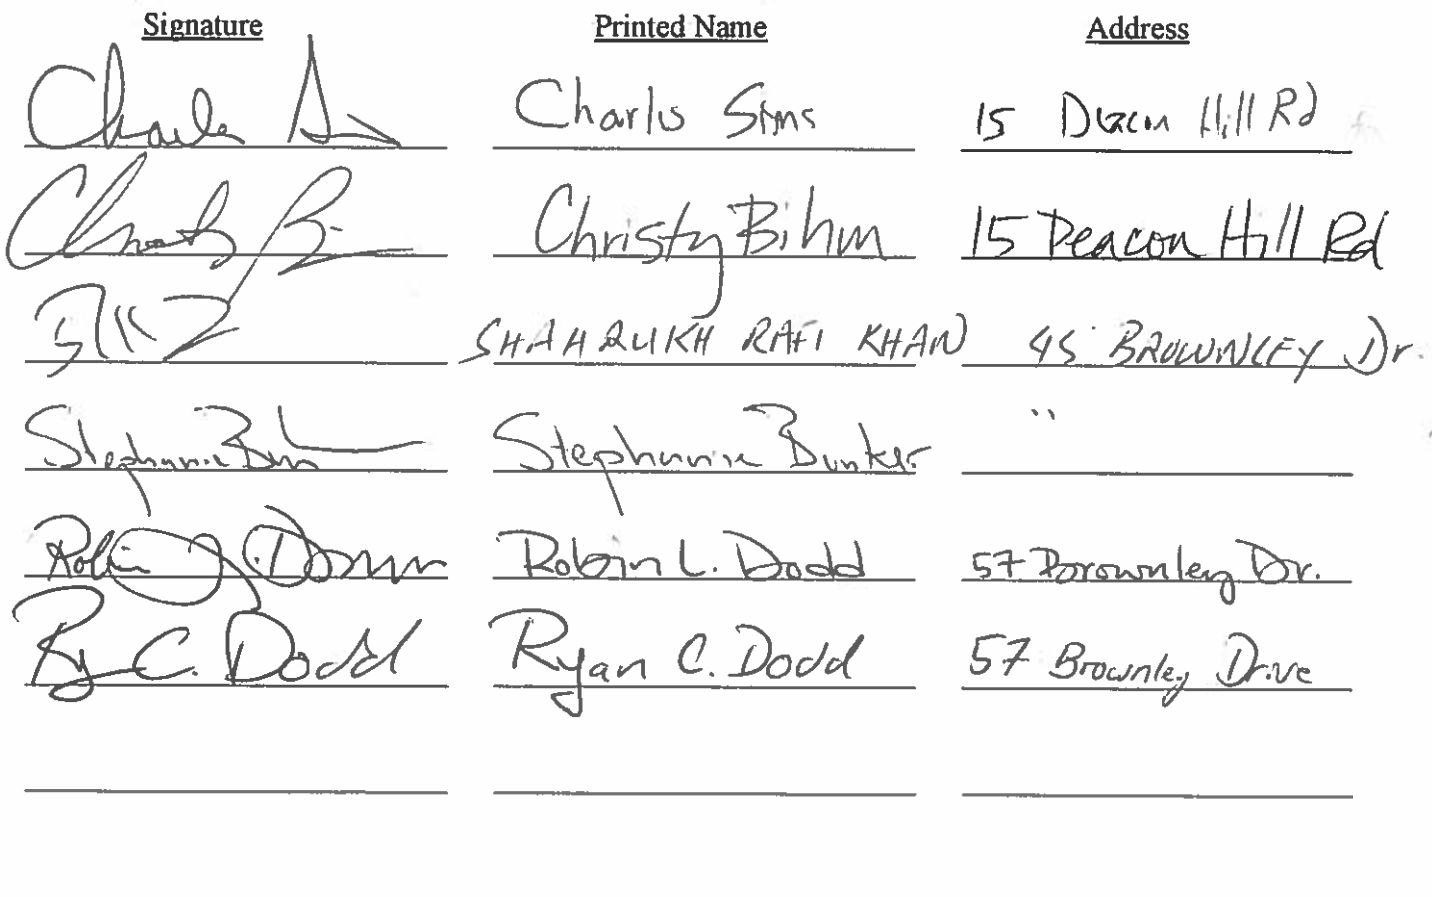 Signature Printed Name Address
Charles Sims Charles Sims 15 Deacon Hill Rd
Christy B Christy Bihm 15 Deacon Hill Rd
SHAHRUKH RAFI KHAN 45 BROWNLEY Dr.
Stephanie Stephanie Bunker "
Robin Robin L. Dodd 57 Brownley Dr.
Ry C. Dodd Ryan C. Dodd 57 Brownley Drive